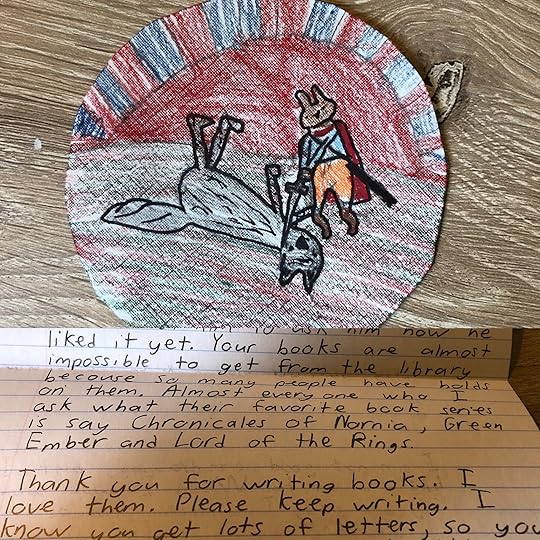 to ask him how he
liked it yet. Your books are almost
impossible to get from the library
because so many people have holds
on them. Almost every one who I
ask what their favorite book series
is say Chronicales of Narnia, Green
Ember and Lord of the Rings.
Thank you for writing books. I
love them. Please keep writing. I
know you get lots of letters, so you